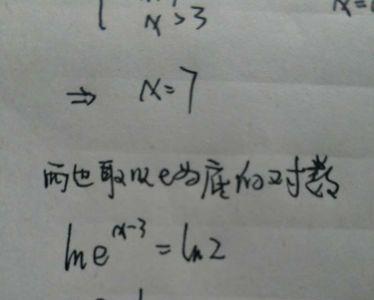 x > 3
x =
⇒ x = 7
两边取以e为底的对数
ln e^{x-3} = ln 2